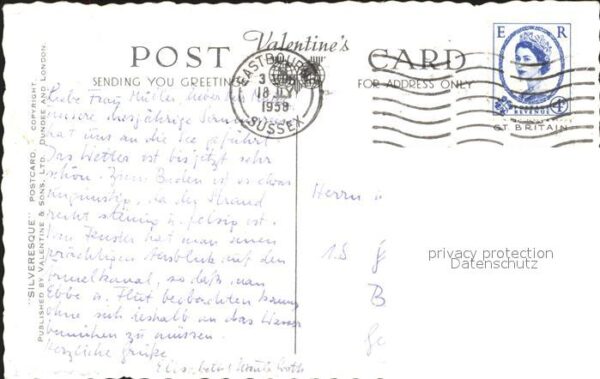 POST Valentine's CARD
SENDING YOU GREETINGS
FOR ADDRESS ONLY
EASTBOURNE
18 JLY
1958
SUSSEX
E R
REVENUE
GT. BRITAIN
"SILVERESQUE" POSTCARD. COPYRIGHT.
PUBLISHED BY VALENTINE & SONS, LTD. DUNDEE AND LONDON.
Liebe Frau Müller, lieber
unsere diesjährige
hat uns an die See geführt
Das Wetter ist bis jetzt sehr
schön. Zum Baden ist es etwas
ungünstig, da der Strand
recht steinig u. felsig ist.
Vom Fenster hat man einen
prächtigen Ausblick auf den
Ärmelkanal, so daß man
Ebbe u. Flut beobachten kann,
ohne sich deshalb an das Wasser
bemühen zu müssen.
Herzliche Grüße
Elisabeth
Herrn
B
privacy protection
Datenschutz